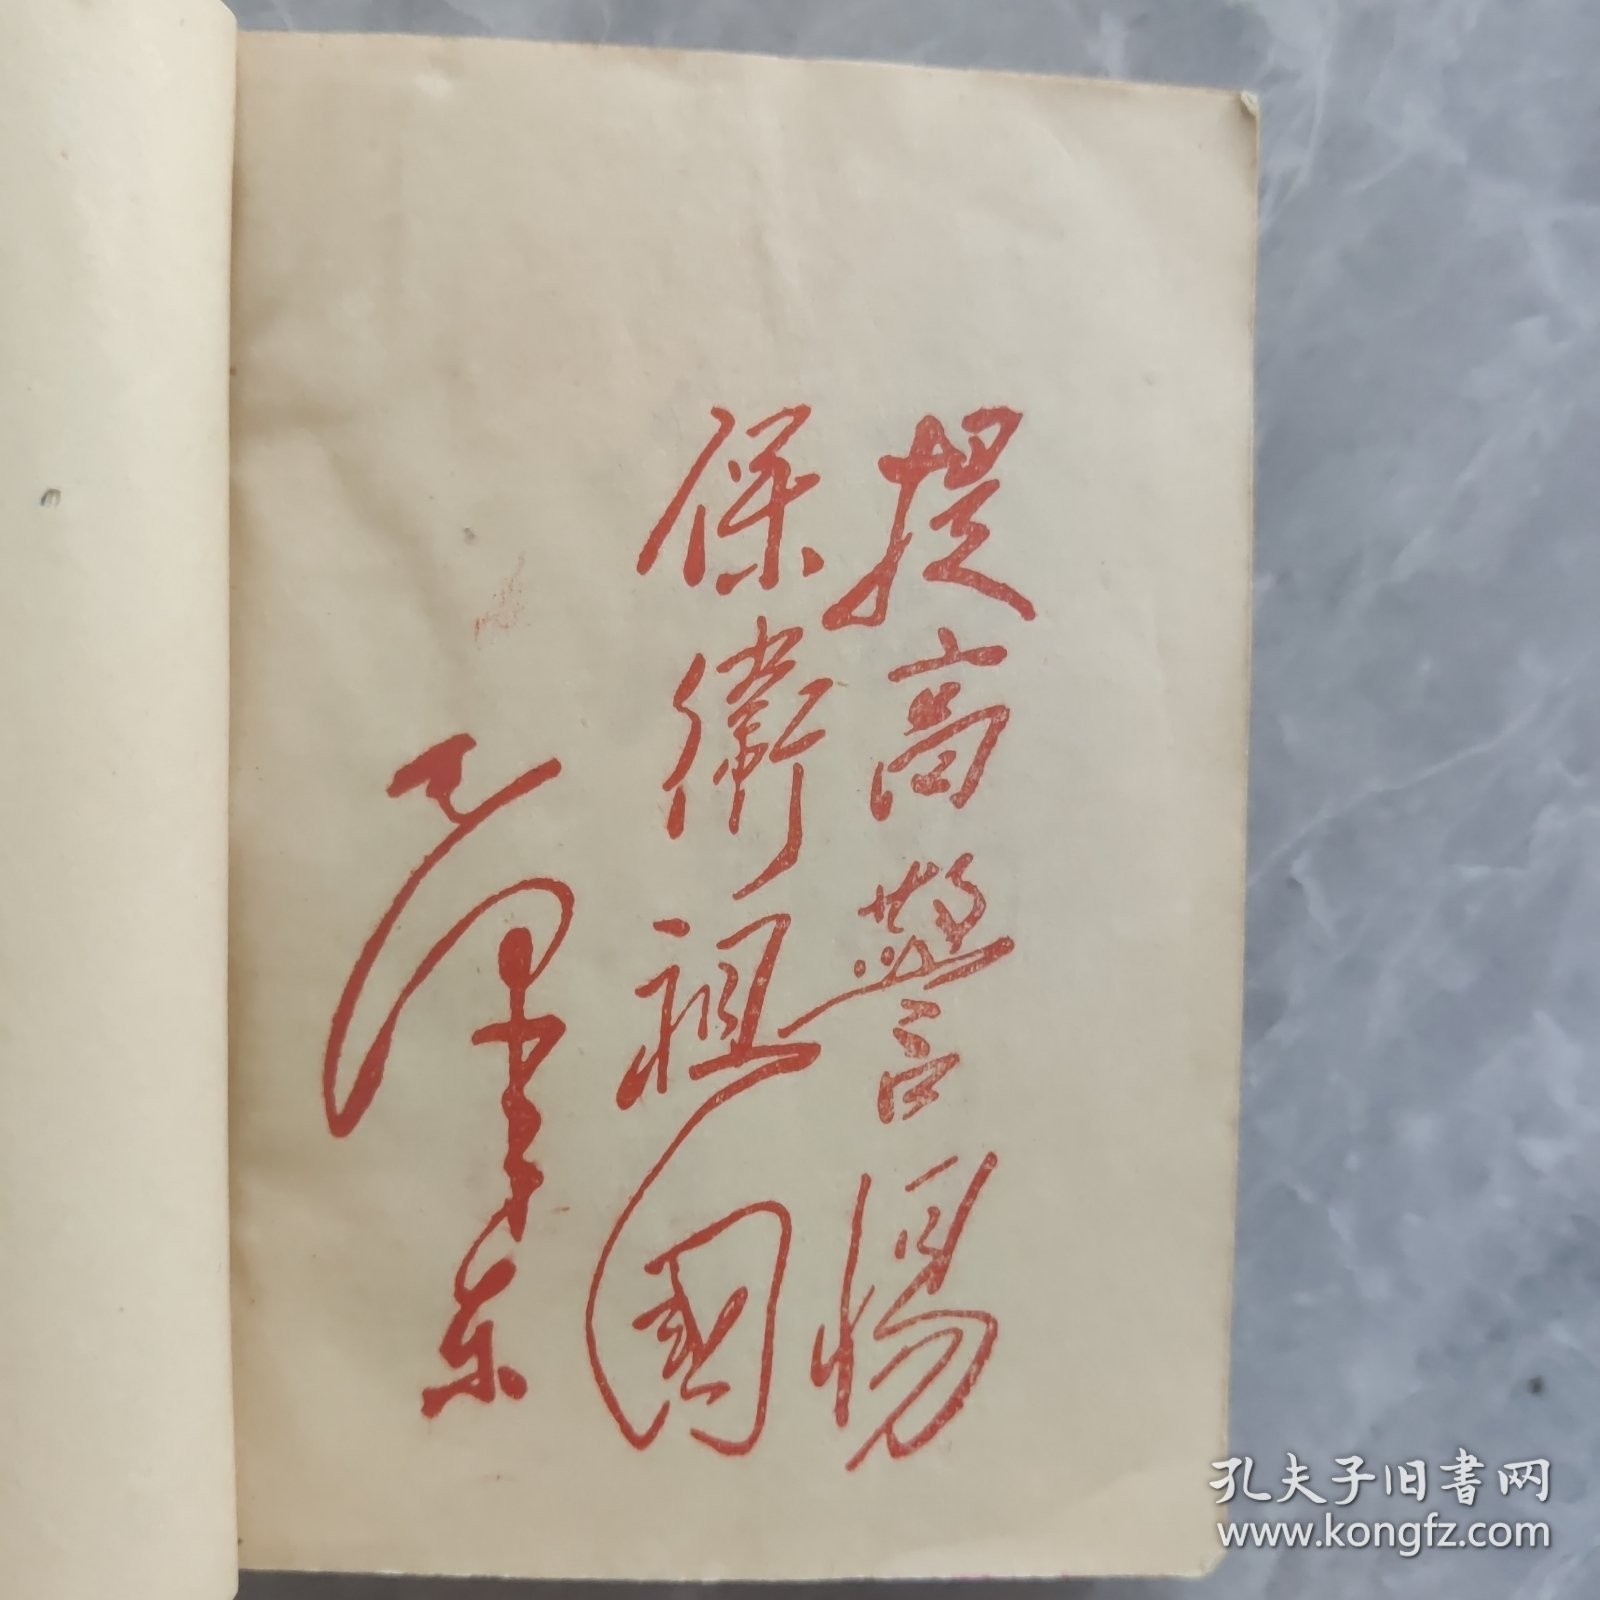 提高警惕
保衛祖國
毛泽东
孔夫子旧書网
www.kongfz.com